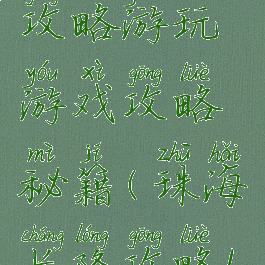 攻略游玩
yóu xì gōng lüè
游戏攻略
mì jí zhū hǎi
秘籍(珠海
cháng lóng gōng lüè